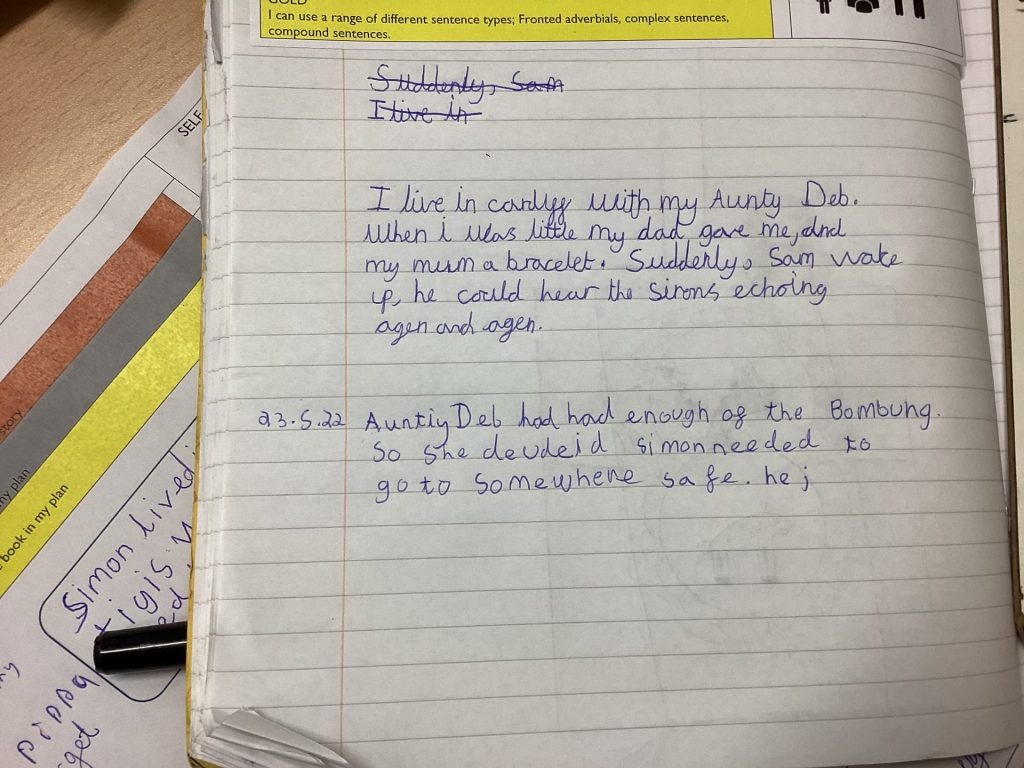 GOLD
I can use a range of different sentence types; Fronted adverbials, complex sentences,
compound sentences.
Suddenly, Sam
I live in
I live in cardyff with my Aunty Deb.
When i was little my dad gave me, and
my mum a bracelet. Sudderly, Sam wake
up, he could hear the sirons echoing
agen and agen.
23.5.22 Auntiy Deb had had enough of the Bombung.
So she deudeid simon needed to
go to somewhere safe. he j
SELF
story
my plan
book in my plan
Simon lived
tigis
ed
my
pippa
get